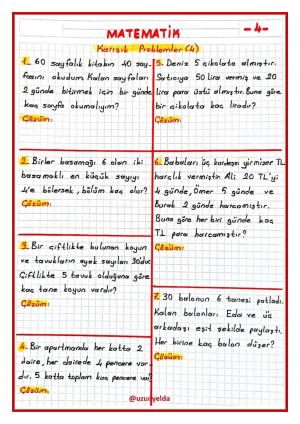 MATEMATİK
-4-
Karışık Problemler (4)
1. 60 sayfalık kitabın 40 say-
fasını okudum. Kalan sayfaları
2 günde bitirmek için bir günde
kaç sayfa okumalıyım?
Çözüm:
2. Birler basamağı 6 olan iki
basamaklı en küçük sayıyı
4'e bölersek, bölüm kaç olur?
Çözüm:
3. Bir çiftlikte bulunan koyun
ve tavukların ayak sayıları 30'dur.
Çiftlikte 5 tavuk olduğuna göre
kaç tane koyun vardır?
Çözüm:
4. Bir apartmanda her katta 2
daire, her dairede 4 pencere var-
dır. 5 katta toplam kaç pencere var?
Çözüm:
5. Deniz 5 çikolata almıştır.
Satıcıya 50 lira vermiş ve 20
lira para üstü almıştır. Buna göre
bir çikolata kaç liradır?
Çözüm:
6. Babaları üç kardeşe yirmişer TL
harçlık vermiştir. Ali 20 TL'yi
4 günde, Ömer 5 günde ve
Burak 2 günde harcamıştır.
Buna göre her biri günde kaç
TL para harcamıştır?
Çözüm:
7. 30 balonun 6 tanesi patladı.
Kalan balonları Eda ve üç
arkadaşı eşit şekilde paylaştı.
Her birine kaç balon düşer?
Çözüm:
@uzunyelda